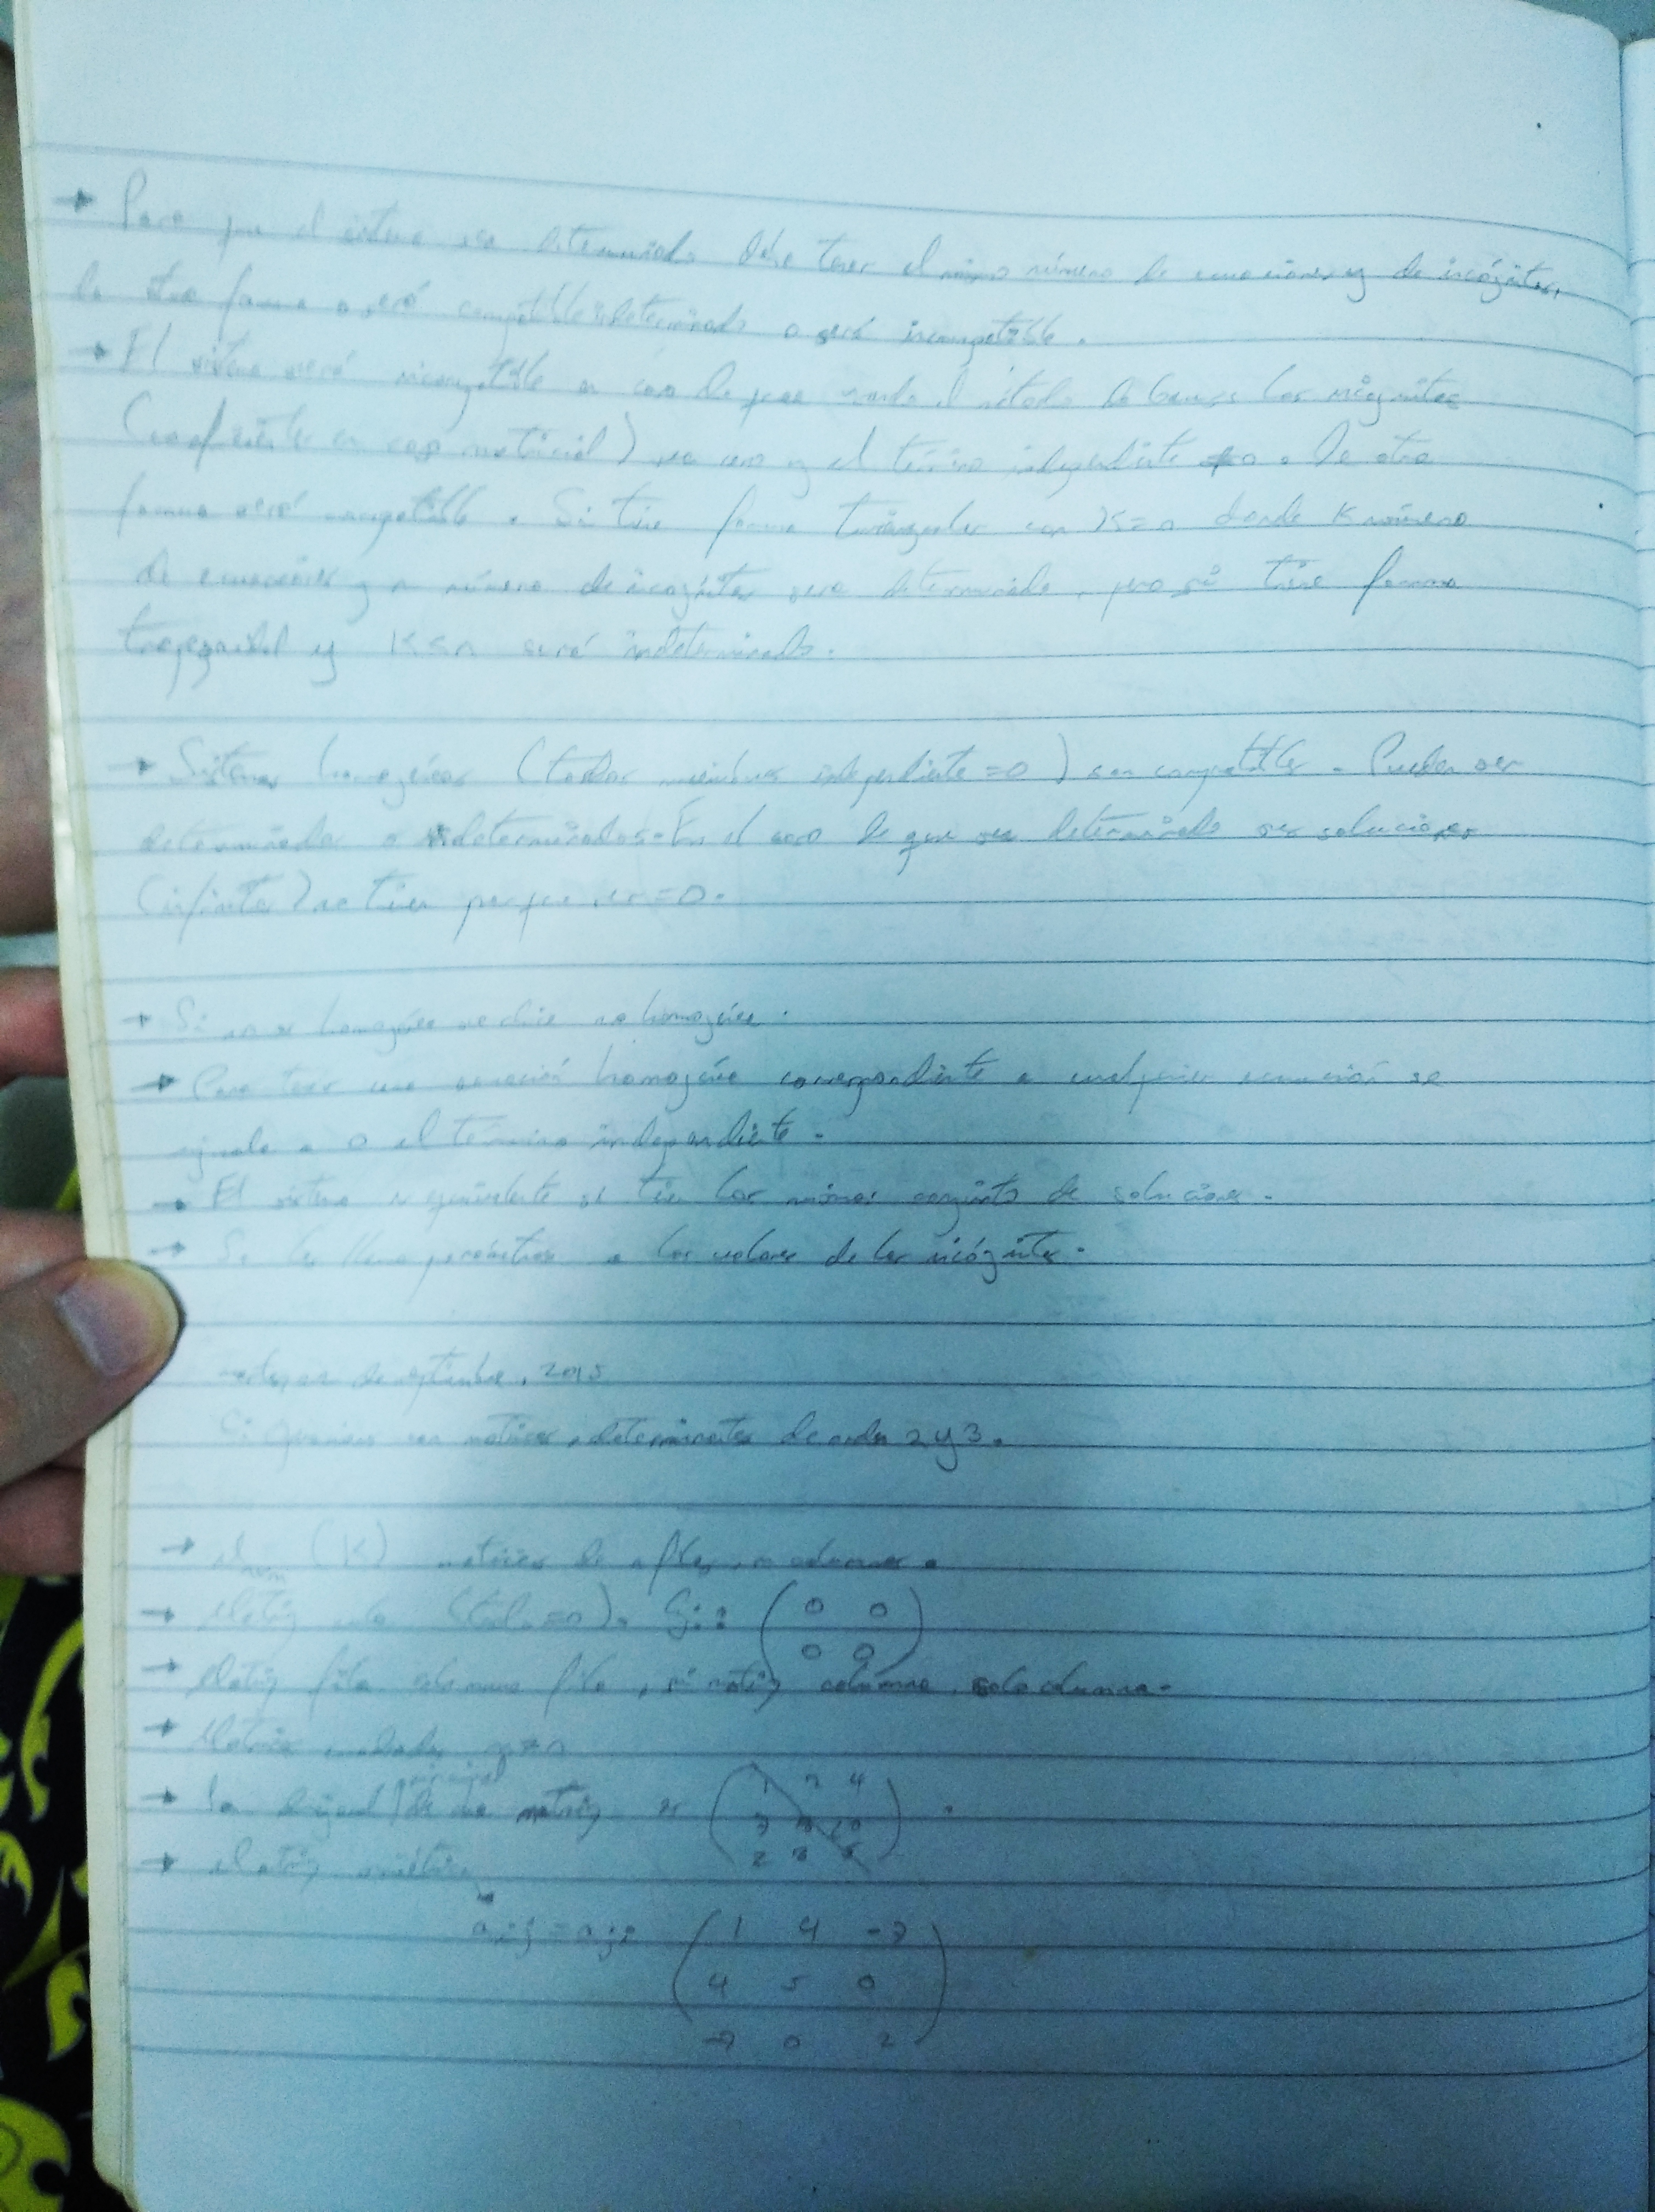 → Para que el sistema sea determinado debe tener el mismo número de ecuaciones y de incógnitas,
de otra forma o será compatible indeterminado o será incompatible.
→ El sistema será incompatible en caso de que usando el método de Gauss las incógnitas
(coeficiente en caso matricial) sea cero y el término independiente ≠ 0. De otra
forma será compatible. Si tiene forma triangular con K=n donde K número
de ecuaciones y n número de incógnitas será determinado, pero si tiene forma
trapezoidal y K≤n será indeterminado.
→ Sistemas homogéneos (todos miembros independiente =0) son compatibles. Pueden ser
determinados o indeterminados. En el caso de que sea determinado sus soluciones
(infinitas) no tienen porque ser =0.
→ Si no es homogéneo se dice no homogéneo.
→ Para tener una ecuación homogénea correspondiente a cualquier ecuación se
iguala a 0 el término independiente.
→ El sistema es equivalente si tiene los mismos conjunto de soluciones.
→ Se les llama parámetros a los valores de las incógnitas.
de septiembre, 2015
con matrices, determinantes de orden 2 y 3.
→ (K) matrices de n filas, m columnas.
→ Matriz nula (todo =0). Ej: ( 0 0
0 0 )
→ Matriz fila solo una fila, si matriz columna, solo columna.
→ Matriz
→ La diagonal principal de una matriz es ( 1 2 4
2 3 5 ) .
→ Matriz simétrica
aij = aji ( 1 4 -7
4 5 0
-7 0 2 )